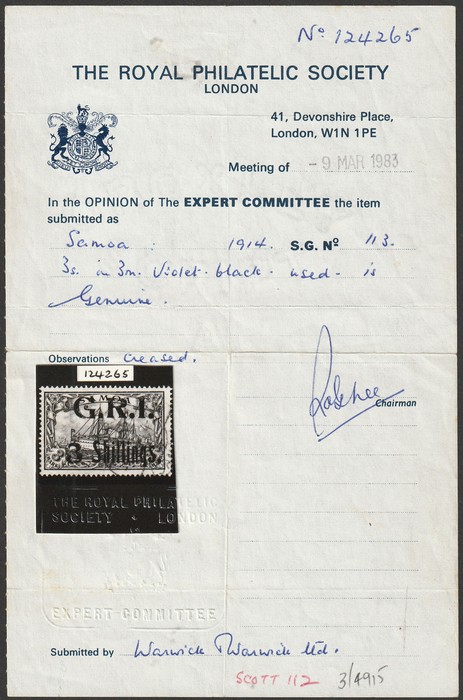 No 124265
THE ROYAL PHILATELIC SOCIETY
LONDON
41, Devonshire Place,
London, W1N 1PE
Meeting of - 9 MAR 1983
In the OPINION of The EXPERT COMMITTEE the item
submitted as
Samoa : 1914. S.G. No 113.
3s. on 3m. Violet-black - used - is
Genuine.
Observations Creased.
124265
G.R.I.
3 Shillings.
Chairman
THE ROYAL PHILATELIC
SOCIETY LONDON
EXPERT COMMITTEE
Submitted by Warwick & Warwick Ltd.
SCOTT 112 3/4915